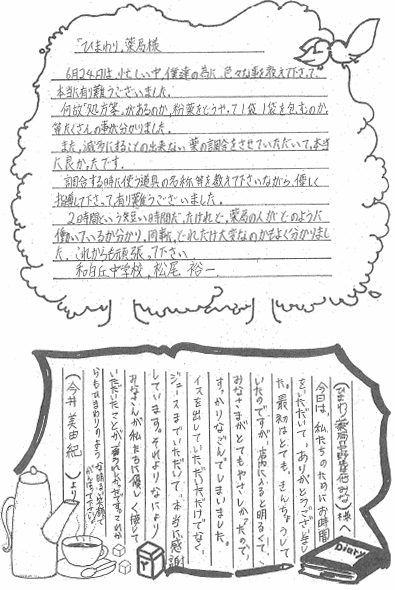 「ひまわり」薬局様
6月24日は、忙しい中、僕達の為に、色々な事を教えて下さって、
本当に有り難うございました。
何故"処方箋"があるのか、粉薬をどうやって1袋1袋を包むのか、
等たくさんの事が分かりました。
また、滅多にすることの出来ない薬の調合をさせていただいて、本当
に良かったです。
調合する時に使う道具の名称等を教えて下さいながら、優しく
指導して下さって、有り難うございました。
2時間という短い時間だったけれど、薬局の人がどのように
働いているか分かり、同時に、どれだけ大変なのかもよく分かりまし
た。これからも頑張って下さい。
和白丘中学校、松尾 裕一
ひまわり薬局 みな様へ
今日は、私たちのためにお時間
をいただいて、ありがとうございまし
た。最初はとても、きんちょうして
いたのですが、店内に入ると明るくて、
みなさまがとてもやさしかったので、
すっかりなごんでしまいました。
イスを出していただいただけでなく、
ジュースまでいただいて、本当に感謝
しています。それよりなにより
みなさんが私たちに優しく接して
いただいたことが、喜られしかったです。これか
らもひまわりのような明るい笑顔で
がんばって下さい。
今井 美由紀 より
Diary